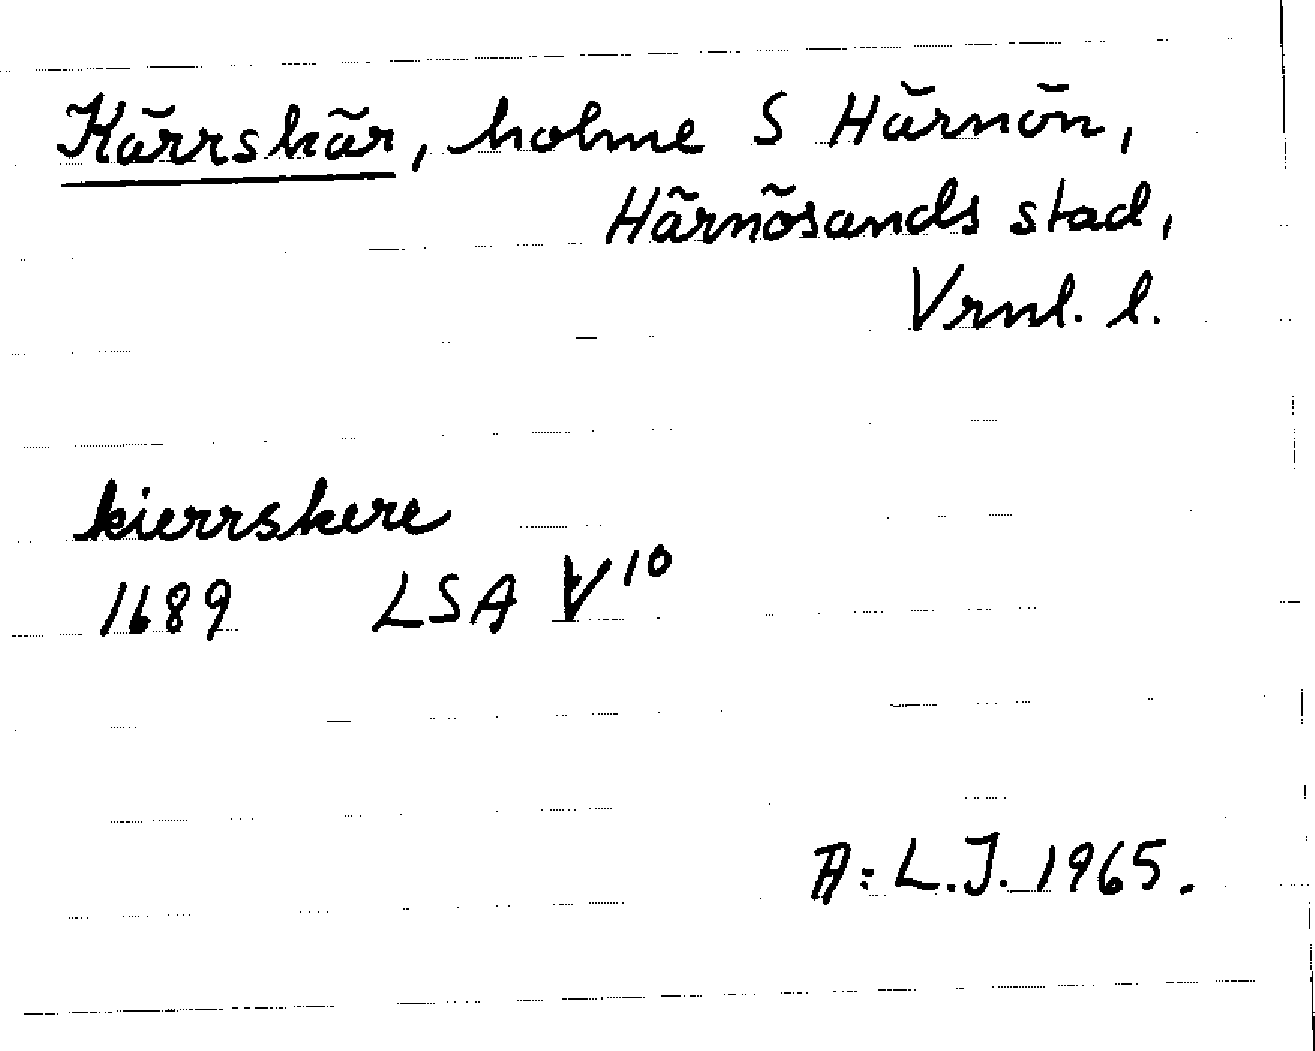 Kärrskär, holme S Härnön,
Härnösands stad,
Vrnl. l.
kierrskere
1689 LSA V 10
A: L.J. 1965.